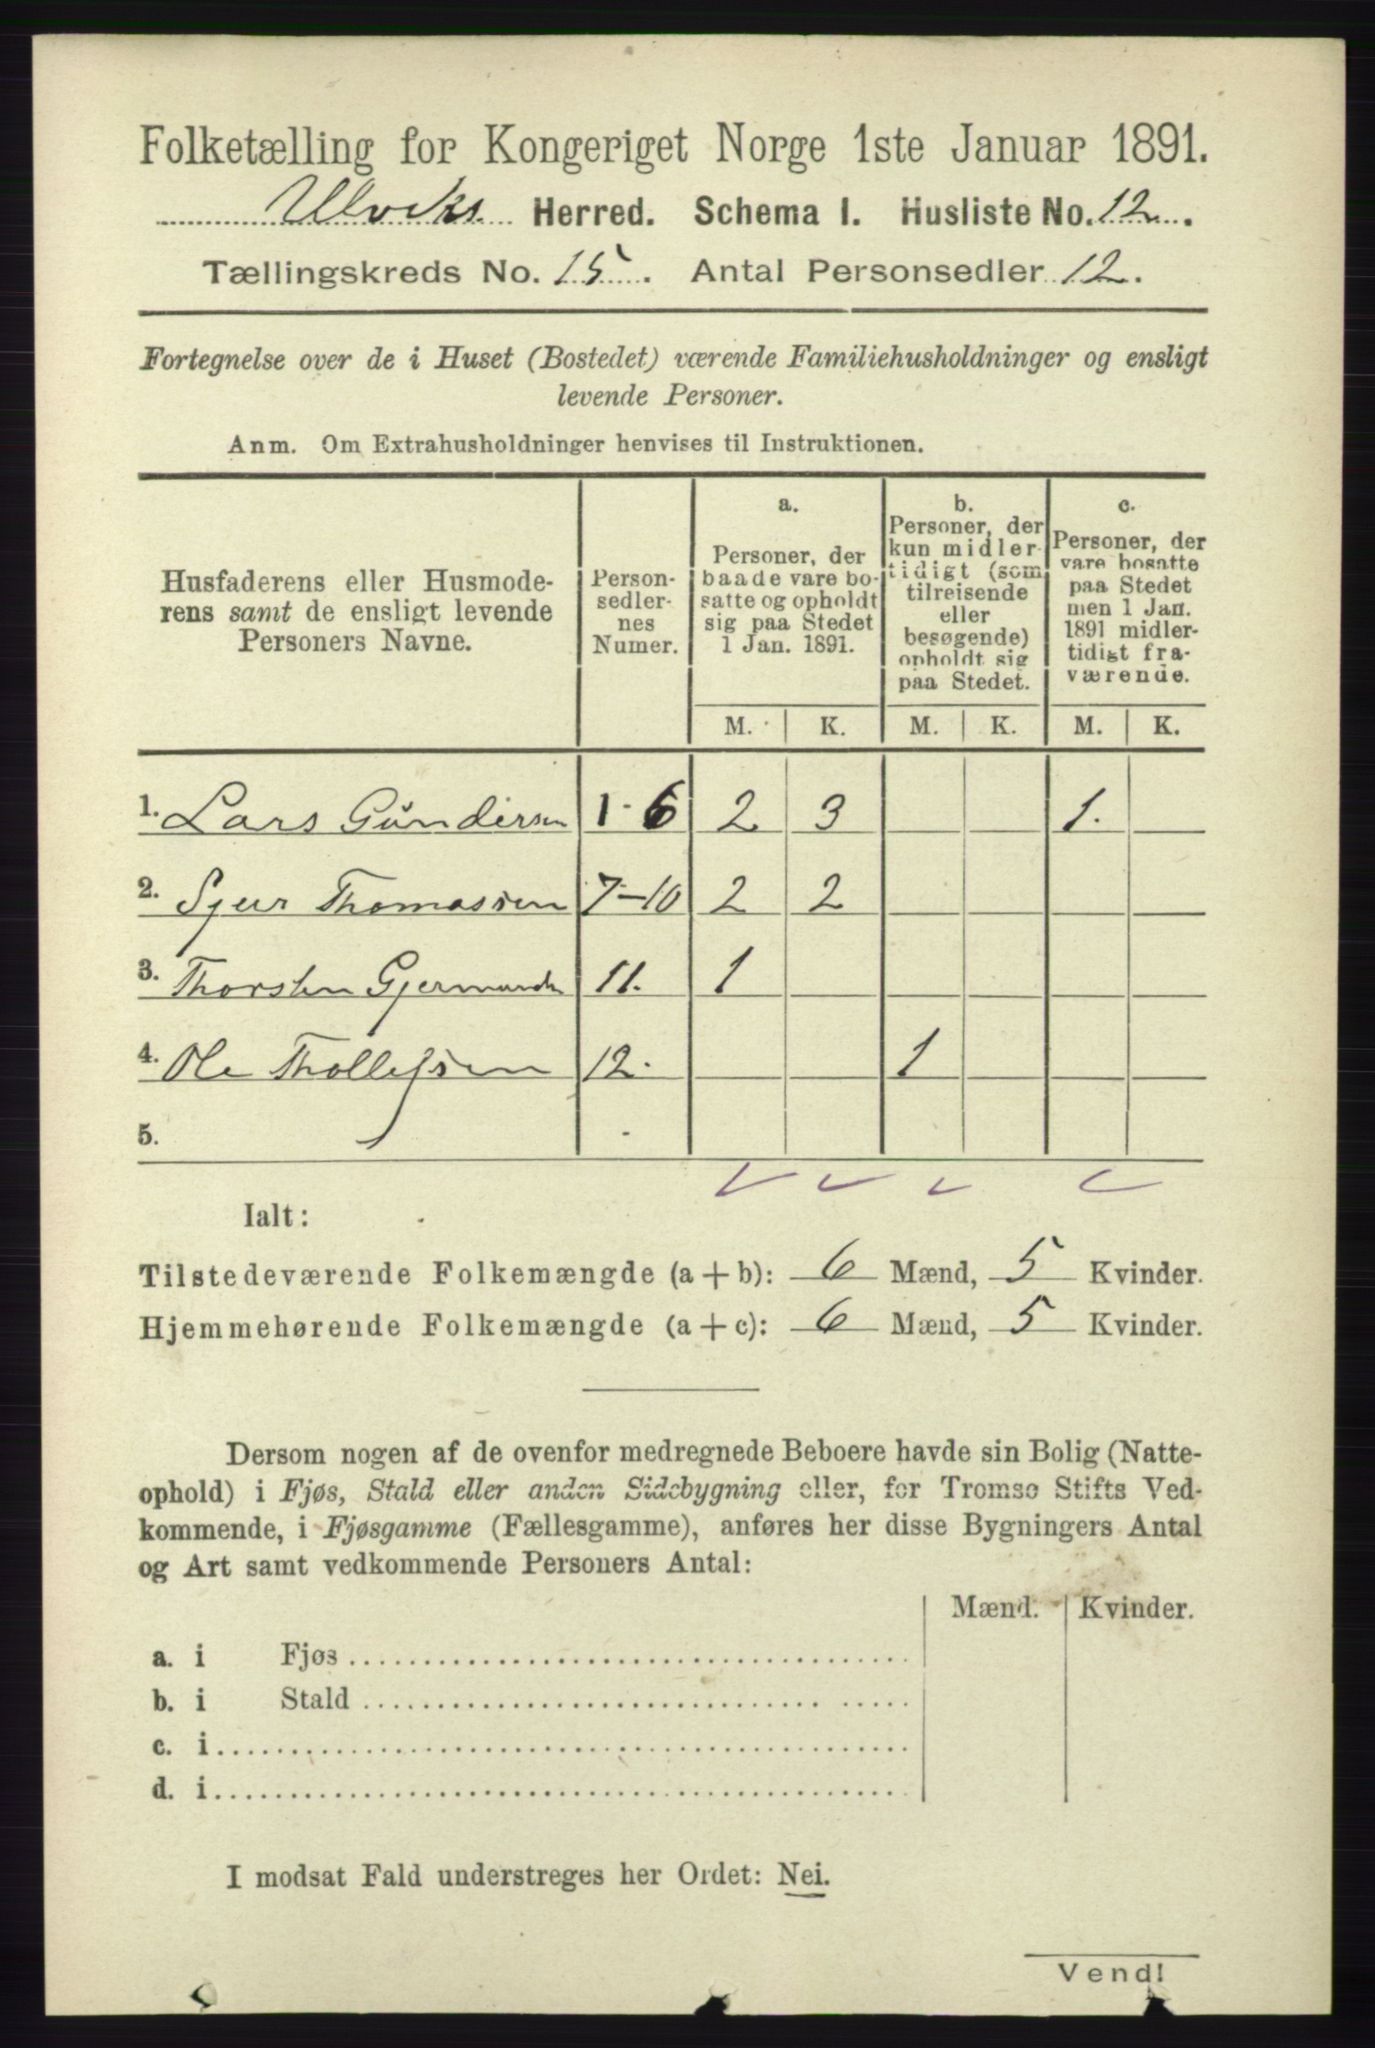 Folketælling for Kongeriget Norge 1ste Januar 1891.
Ulviks Herred. Schema I. Husliste No. 12.
Tællingskreds No. 15. Antal Personsedler 12.
Fortegnelse over de i Huset (Bostedet) værende Familiehusholdninger og ensligt
levende Personer.
Anm. Om Extrahusholdninger henvises til Instruktionen.
Husfaderens eller Husmode-
rens samt de ensligt levende
Personers Navne.
Person-
sedler-
nes
Numer.
a.
Personer, der
baade vare bo-
satte og opholdt
sig paa Stedet
1 Jan. 1891.
b.
Personer, der
kun midler-
tidigt (som
tilreisende
eller
besøgende)
opholdt sig
paa Stedet.
c.
Personer, der
vare bosatte
paa Stedet
men 1 Jan.
1891 midler-
tidigt fra-
værende.
M. K. M. K. M. K.
1. Lars Gundersen 1-6 2 3 1.
2. Sjur Thomassen 7-10 2 2
3. Thorsten Gjermunds 11. 1
4. Ole Thollefsen 12. 1
5.
Ialt:
Tilstedeværende Folkemængde (a+b): 6 Mænd, 5 Kvinder.
Hjemmehørende Folkemængde (a+c): 6 Mænd, 5 Kvinder.
Dersom nogen af de ovenfor medregnede Beboere havde sin Bolig (Natte-
ophold) i Fjøs, Stald eller anden Sidebygning eller, for Tromsø Stifts Ved-
kommende, i Fjøsgamme (Fællesgamme), anføres her disse Bygningers Antal
og Art samt vedkommende Personers Antal:
Mænd. Kvinder.
a. i Fjøs
b. i Stald
c. i
d. i
I modsat Fald understreges her Ordet: Nei.
Vend!